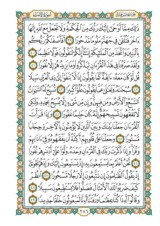 ذَٰلِكَ مِمَّا أَوْحَىٰ إِلَيْكَ رَبُّكَ مِنَ الْحِكْمَةِ وَلَا تَجْعَلْ مَعَ اللَّهِ إِلَٰهًا
آخَرَ فَتُلْقَىٰ فِي جَهَنَّمَ مَلُومًا مَدْحُورًا أَفَأَصْفَاكُمْ رَبُّكُمْ
بِالْبَنِينَ وَاتَّخَذَ مِنَ الْمَلَائِكَةِ إِنَاثًا إِنَّكُمْ لَتَقُولُونَ قَوْلًا عَظِيمًا
وَلَقَدْ صَرَّفْنَا فِي هَٰذَا الْقُرْآنِ لِيَذَّكَّرُوا وَمَا يَزِيدُهُمْ إِلَّا نُفُورًا
قُلْ لَوْ كَانَ مَعَهُ آلِهَةٌ كَمَا يَقُولُونَ إِذًا لَابْتَغَوْا إِلَىٰ ذِي الْعَرْشِ سَبِيلًا
سُبْحَانَهُ وَتَعَالَىٰ عَمَّا يَقُولُونَ عُلُوًّا كَبِيرًا تُسَبِّحُ لَهُ
السَّمَاوَاتُ السَّبْعُ وَالْأَرْضُ وَمَنْ فِيهِنَّ وَإِنْ مِنْ شَيْءٍ إِلَّا يُسَبِّحُ
بِحَمْدِهِ وَلَٰكِنْ لَا تَفْقَهُونَ تَسْبِيحَهُمْ إِنَّهُ كَانَ حَلِيمًا غَفُورًا
وَإِذَا قَرَأْتَ الْقُرْآنَ جَعَلْنَا بَيْنَكَ وَبَيْنَ الَّذِينَ لَا يُؤْمِنُونَ بِالْآخِرَةِ حِجَابًا
مَسْتُورًا وَجَعَلْنَا عَلَىٰ قُلُوبِهِمْ أَكِنَّةً أَنْ يَفْقَهُوهُ وَفِي آذَانِهِمْ وَقْرًا
وَإِذَا ذَكَرْتَ رَبَّكَ فِي الْقُرْآنِ وَحْدَهُ وَلَّوْا عَلَىٰ أَدْبَارِهِمْ نُفُورًا
نَحْنُ أَعْلَمُ بِمَا يَسْتَمِعُونَ بِهِ إِذْ يَسْتَمِعُونَ إِلَيْكَ وَإِذْ هُمْ نَجْوَىٰ
إِذْ يَقُولُ الظَّالِمُونَ إِنْ تَتَّبِعُونَ إِلَّا رَجُلًا مَسْحُورًا انْظُرْ
كَيْفَ ضَرَبُوا لَكَ الْأَمْثَالَ فَضَلُّوا فَلَا يَسْتَطِيعُونَ سَبِيلًا
وَقَالُوا أَإِذَا كُنَّا عِظَامًا وَرُفَاتًا أَإِنَّا لَمَبْعُوثُونَ خَلْقًا جَدِيدًا
٢٨٦